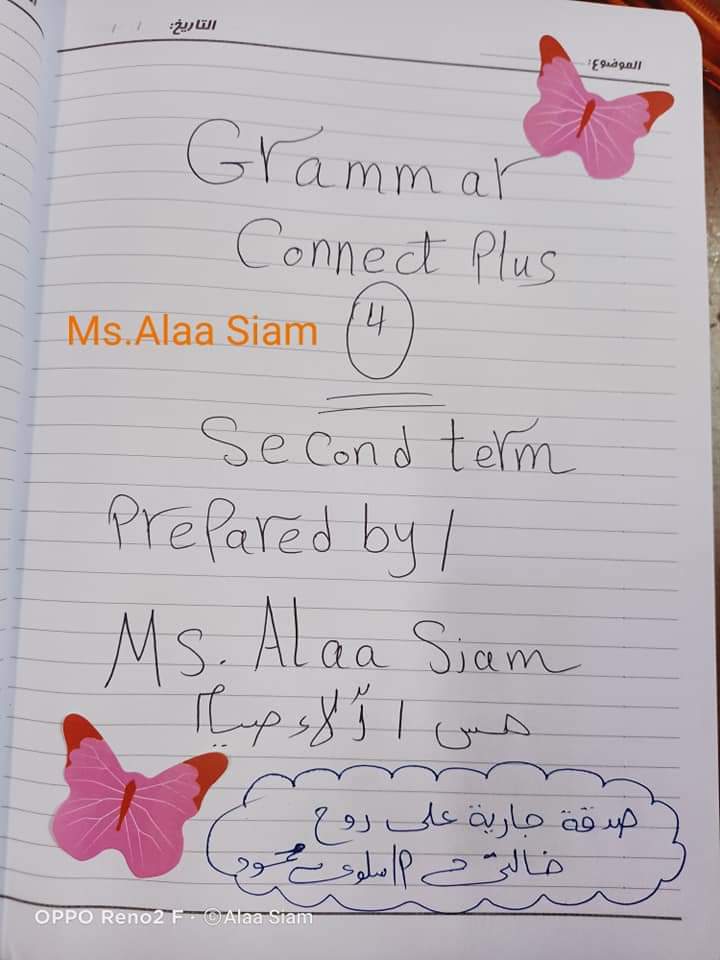 التاريخ: / /
الموضوع:
Grammar
Connect Plus
4
Ms.Alaa Siam
Second term
Prepared by /
Ms. Alaa Siam
مس / آلاء صيام
صدقة جارية على روح
خالتى م / سلوى محمود
OPPO Reno2 F · ©Alaa Siam